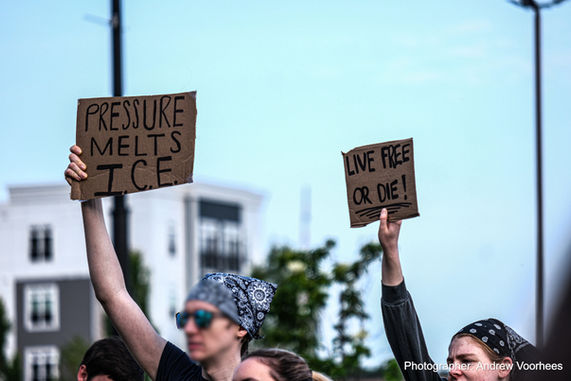 PRESSURE
MELTS
I.C.E.
LIVE FREE
OR DIE!
Photographer: Andrew Voorhees